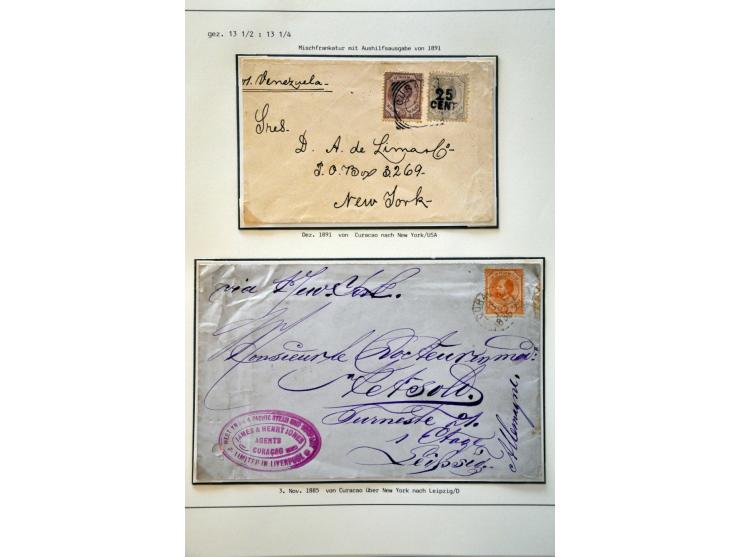 gez. 13 1/2 : 13 1/4
Mischfrankatur mit Aushilfsausgabe von 1891
Venezuela
25
CENT
Sres.
D. A. de Lima & Co
P.O. Box 3269
New York
Dez. 1891 von Curacao nach New York/USA
via New York.
Monsieur le Docteur
Turneste
1 Etage
Leipsig
Allemagne.
& PACIFIC STEAM
JAMES & HENRY JONES
AGENTS
CURAÇAO
LIMITED IN LIVERPOOL
3. Nov. 1885 von Curacao über New York nach Leipzig/D